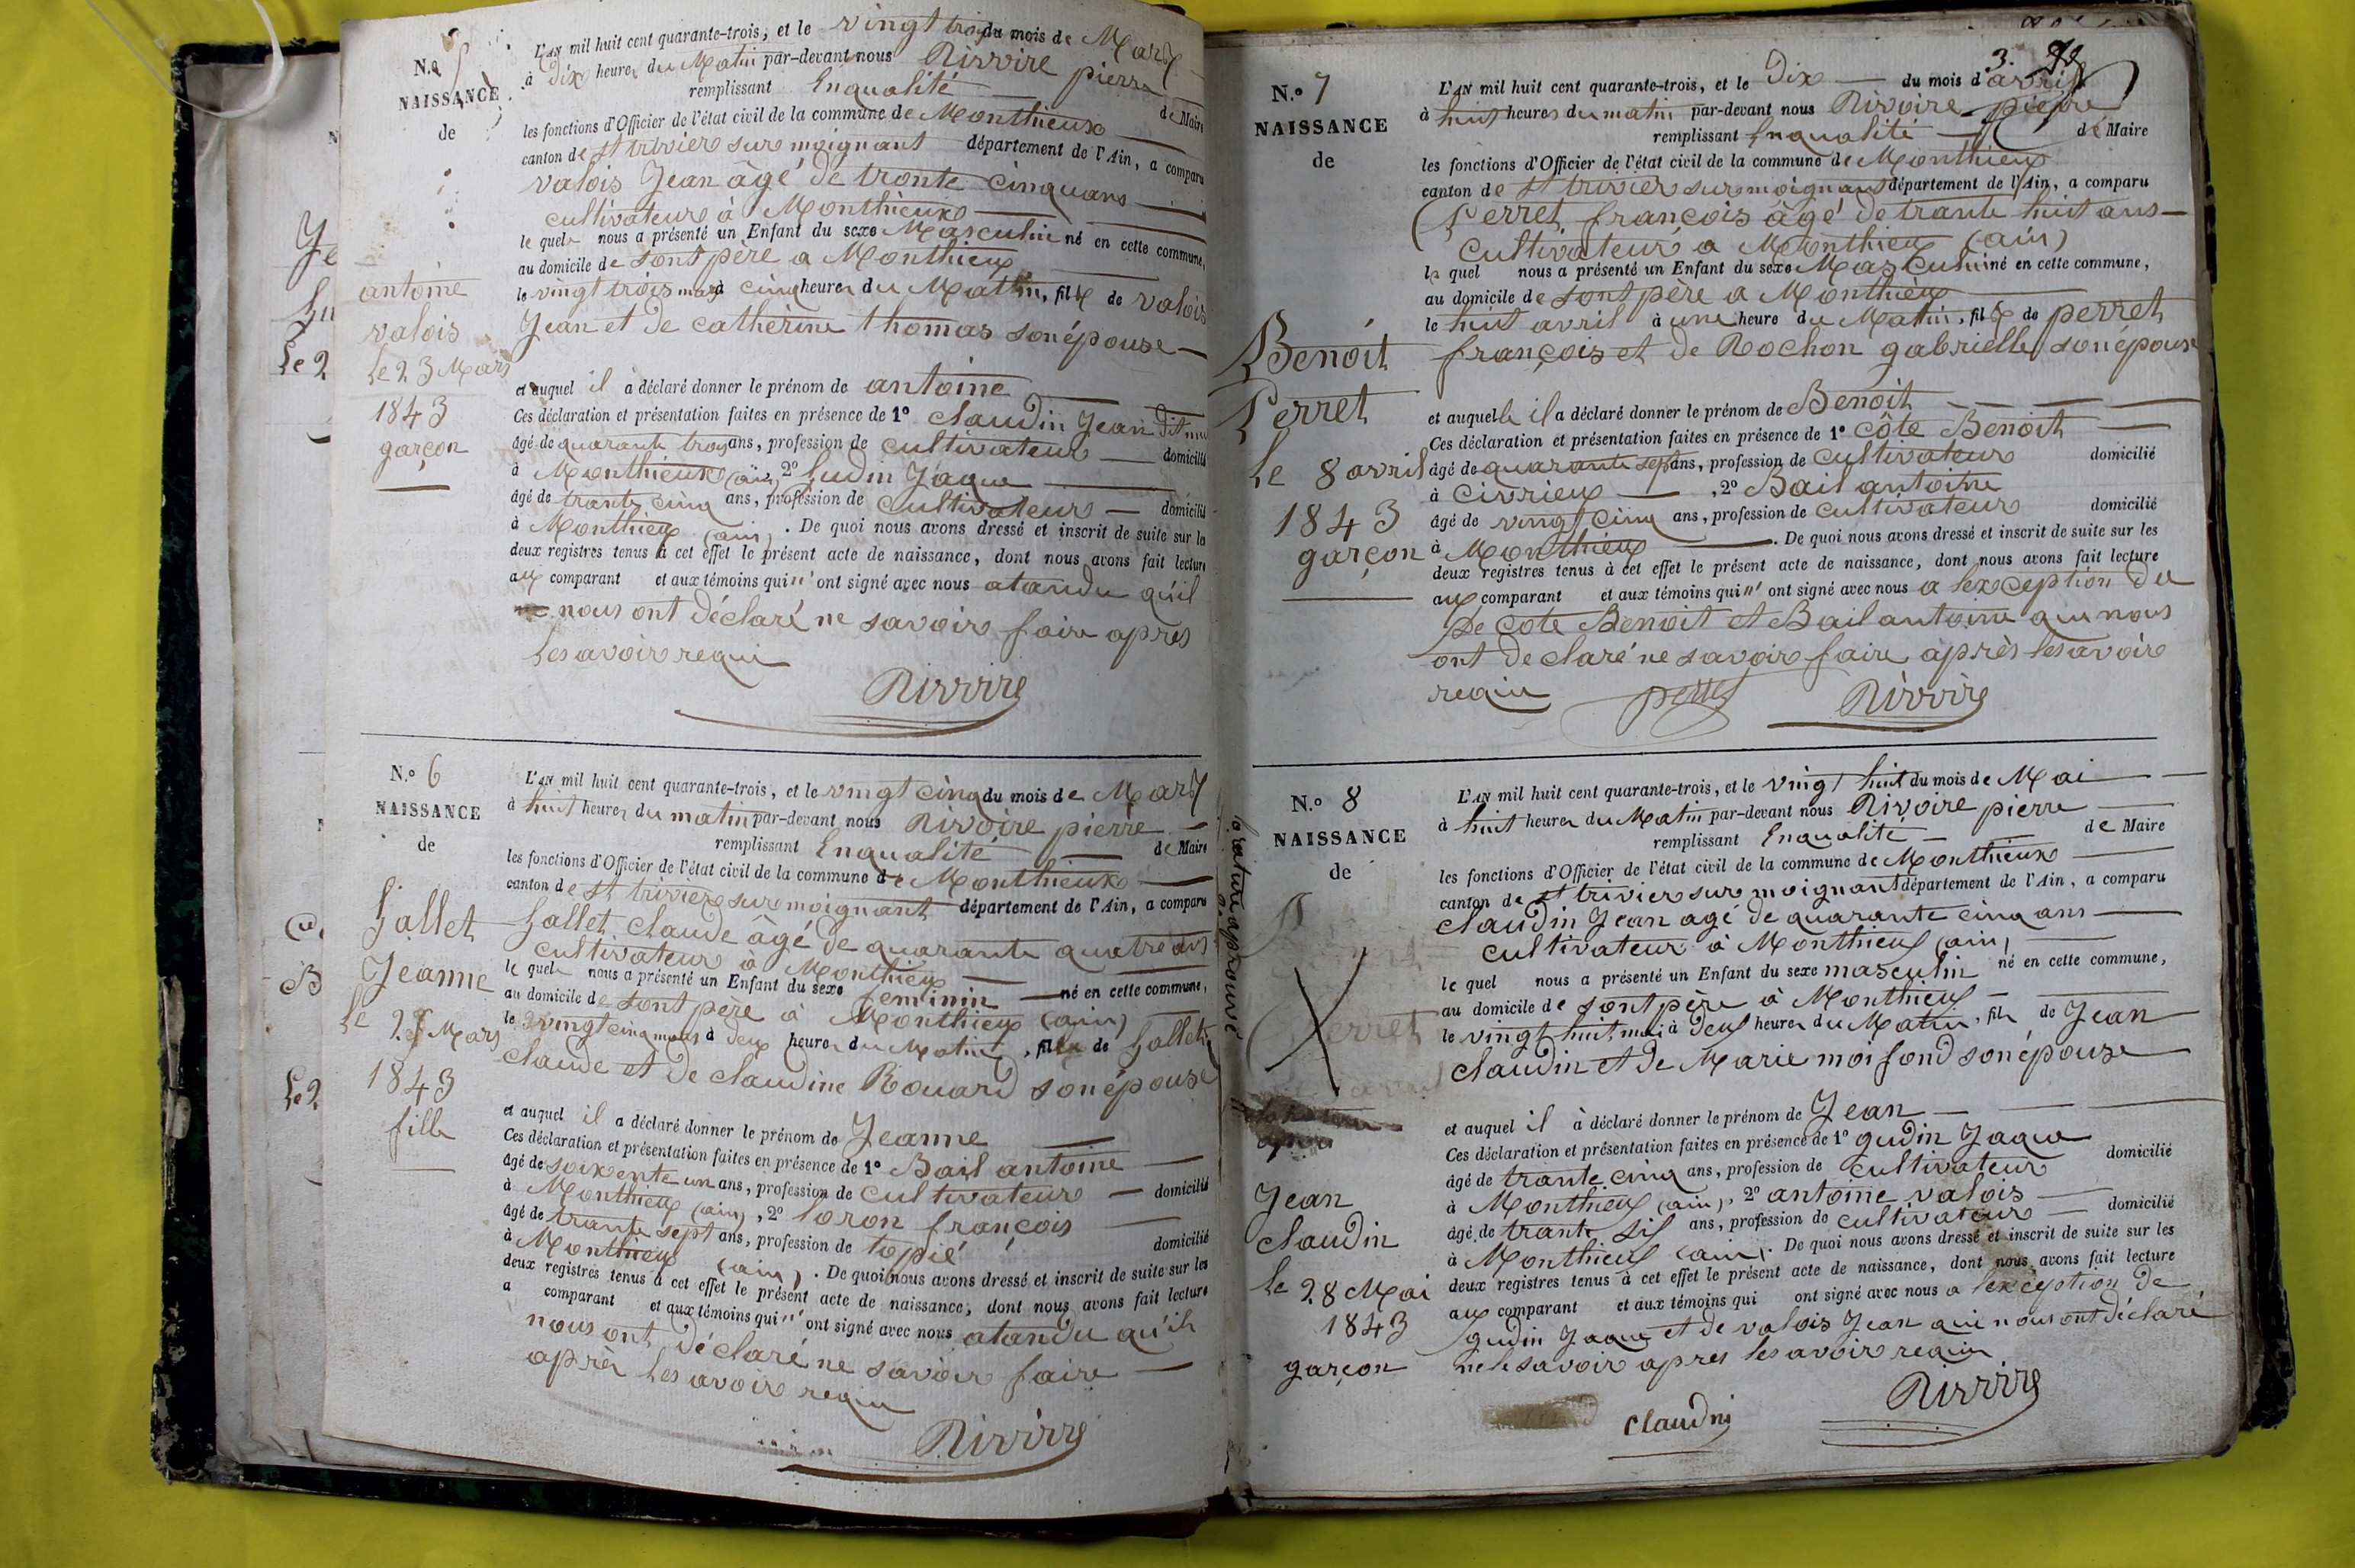 N.o 5
NAISSANCE
de
antoine
valois
Le 23 Mars
1843
garçon
L'AN mil huit cent quarante-trois, et le vingt trois du mois de Mars
à Dix heures du Matin par-devant nous Rivoire pierre
remplissant Enqualité de Maire
les fonctions d'Officier de l'état civil de la commune de Monthieux
canton de st trivier sur moignant département de l'Ain, a comparu
valois Jean âgé de trente cinquans
cultivateur à Monthieux
le quel nous a présenté un Enfant du sexe Masculin né en cette commune,
au domicile de sont père a Monthieux
le vingt trois mars à cinq heures du Matin, fils de valois
Jean et de catherine thomas son épouse
et auquel il a déclaré donner le prénom de antoine
Ces déclaration et présentation faites en présence de 1o claudin Jean dit
âgé de quarante troys ans, profession de cultivateur domicilié
à Monthieux (ain) 2o Gudin Jaque
âgé de trante cinq ans, profession de cultivateur domicilié
à Monthieux (ain). De quoi nous avons dressé et inscrit de suite sur les
deux registres tenus à cet effet le présent acte de naissance, dont nous avons fait lecture
aux comparant et aux témoins qui n'ont signé avec nous atandu qu'il
nous ont déclaré ne savoir faire apres
les avoir requi
Rivoire
N.o 6
NAISSANCE
de
Gallet
Jeanne
le 25 Mars
1843
fille
L'AN mil huit cent quarante-trois, et le vingt cinq du mois de Mars
à huit heures du matin par-devant nous Rivoire pierre
remplissant Enqualité de Maire
les fonctions d'Officier de l'état civil de la commune de Monthieux
canton de st trivier sur moignant département de l'Ain, a comparu
Gallet claude âgé de quarante quatre ans
cultivateur à Monthieux
le quel nous a présenté un Enfant du sexe feminin né en cette commune,
au domicile de sont père à Monthieux (ain)
le vingt cinq mars à deux heures du Matin, fille de Gallet
claude et de claudine Rouard son épouse
et auquel il a déclaré donner le prénom de Jeanne
Ces déclaration et présentation faites en présence de 1o Bail antoine
âgé de soixente un ans, profession de cultivateur domicilié
à Monthieux (ain), 2o loron françois
âgé de trante sept ans, profession de topié domicilié
à Monthieux (ain). De quoi nous avons dressé et inscrit de suite sur les
deux registres tenus à cet effet le présent acte de naissance, dont nous avons fait lecture
a comparant et aux témoins qui n'ont signé avec nous atandu qu'ils
nous ont déclaré ne savoir faire
après les avoir requi
Rivoire
3.
N.o 7
NAISSANCE
de
Benoit
Perret
le 8 avril
1843
garçon
L'AN mil huit cent quarante-trois, et le Dix du mois d'avril
à huit heures du matin par-devant nous Rivoire pierre
remplissant Enqualité de Maire
les fonctions d'Officier de l'état civil de la commune de Monthieux
canton de st trivier sur moignans département de l'Ain, a comparu
Perret françois âgé de trante huit ans
cultivateur a Monthieux (ain)
le quel nous a présenté un Enfant du sexe Masculin né en cette commune,
au domicile de sont père a Monthieux
le huit avril à une heure du Matin, fils de perret
françois et de Rochon gabrielle son épouse
et auquel il a déclaré donner le prénom de Benoit
Ces déclaration et présentation faites en présence de 1o côte Benoit
âgé de quarante sept ans, profession de cultivateur domicilié
à civrieux, 2o Bail antoine
âgé de vingt cinq ans, profession de cultivateur domicilié
à Monthieux. De quoi nous avons dressé et inscrit de suite sur les
deux registres tenus à cet effet le présent acte de naissance, dont nous avons fait lecture
aux comparant et aux témoins qui n'ont signé avec nous a lexception du
De cote Benoit et Bail antoine qui nous
ont declaré ne savoir faire après les avoir
requi perret Rivoire
N.o 8
NAISSANCE
de
Perret
la rature approuvé
Jean
claudin
le 28 Mai
1843
garçon
L'AN mil huit cent quarante-trois, et le vingt huit du mois de Mai
à huit heures du Matin par-devant nous Rivoire pierre
remplissant Enqualité de Maire
les fonctions d'Officier de l'état civil de la commune de Monthieux
canton de st trivier sur moignant département de l'Ain, a comparu
claudin Jean agé de quarante cinq ans
cultivateur à Monthieux (ain)
le quel nous a présenté un Enfant du sexe masculin né en cette commune,
au domicile de sont père à Monthieux
le vingt huit mai à deux heures du Matin, fils de Jean
claudin et de Marie moifond son épouse
et auquel il à déclaré donner le prénom de Jean
Ces déclaration et présentation faites en présence de 1o gudin Jaque
âgé de trante cinq ans, profession de cultivateur domicilié
à Monthieux (ain), 2o antoine valois
âgé de trante six ans, profession de cultivateur domicilié
à Monthieux (ain). De quoi nous avons dressé et inscrit de suite sur les
deux registres tenus à cet effet le présent acte de naissance, dont nous avons fait lecture
aux comparant et aux témoins qui ont signé avec nous a lexception de
gudin Jaque et de valois Jean qui nous ont déclaré
ne le savoir apres les avoir requi
claudin Rivoire